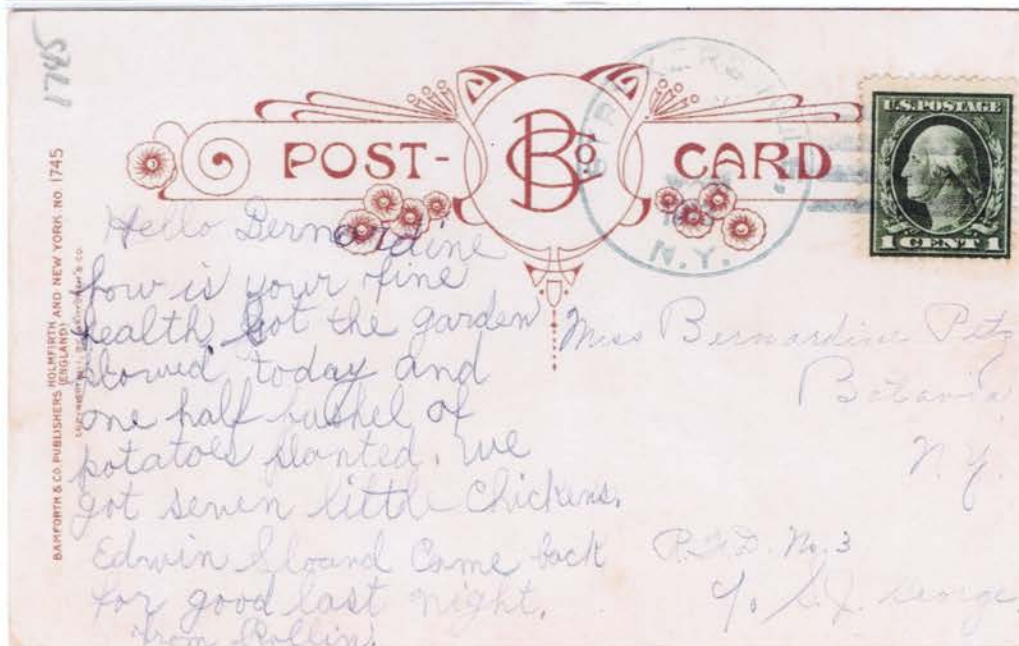 1745
POST-CARD
BCo.
U.S. POSTAGE
1 CENT 1
N.Y.
BAMFORTH & CO. PUBLISHERS HOLMFIRTH (ENGLAND) AND NEW YORK. NO. 1745
Hello Bernardine
how is your fine
health, got the garden
plowed today and
one half bushel of
potatoes planted. we
got seven little chickens.
Edwin Sloand Came back
for good last night.
from Rollin.
Miss Bernardine Petz
Batavia
N.Y.
R.F.D. No. 3
c/o S.J. George